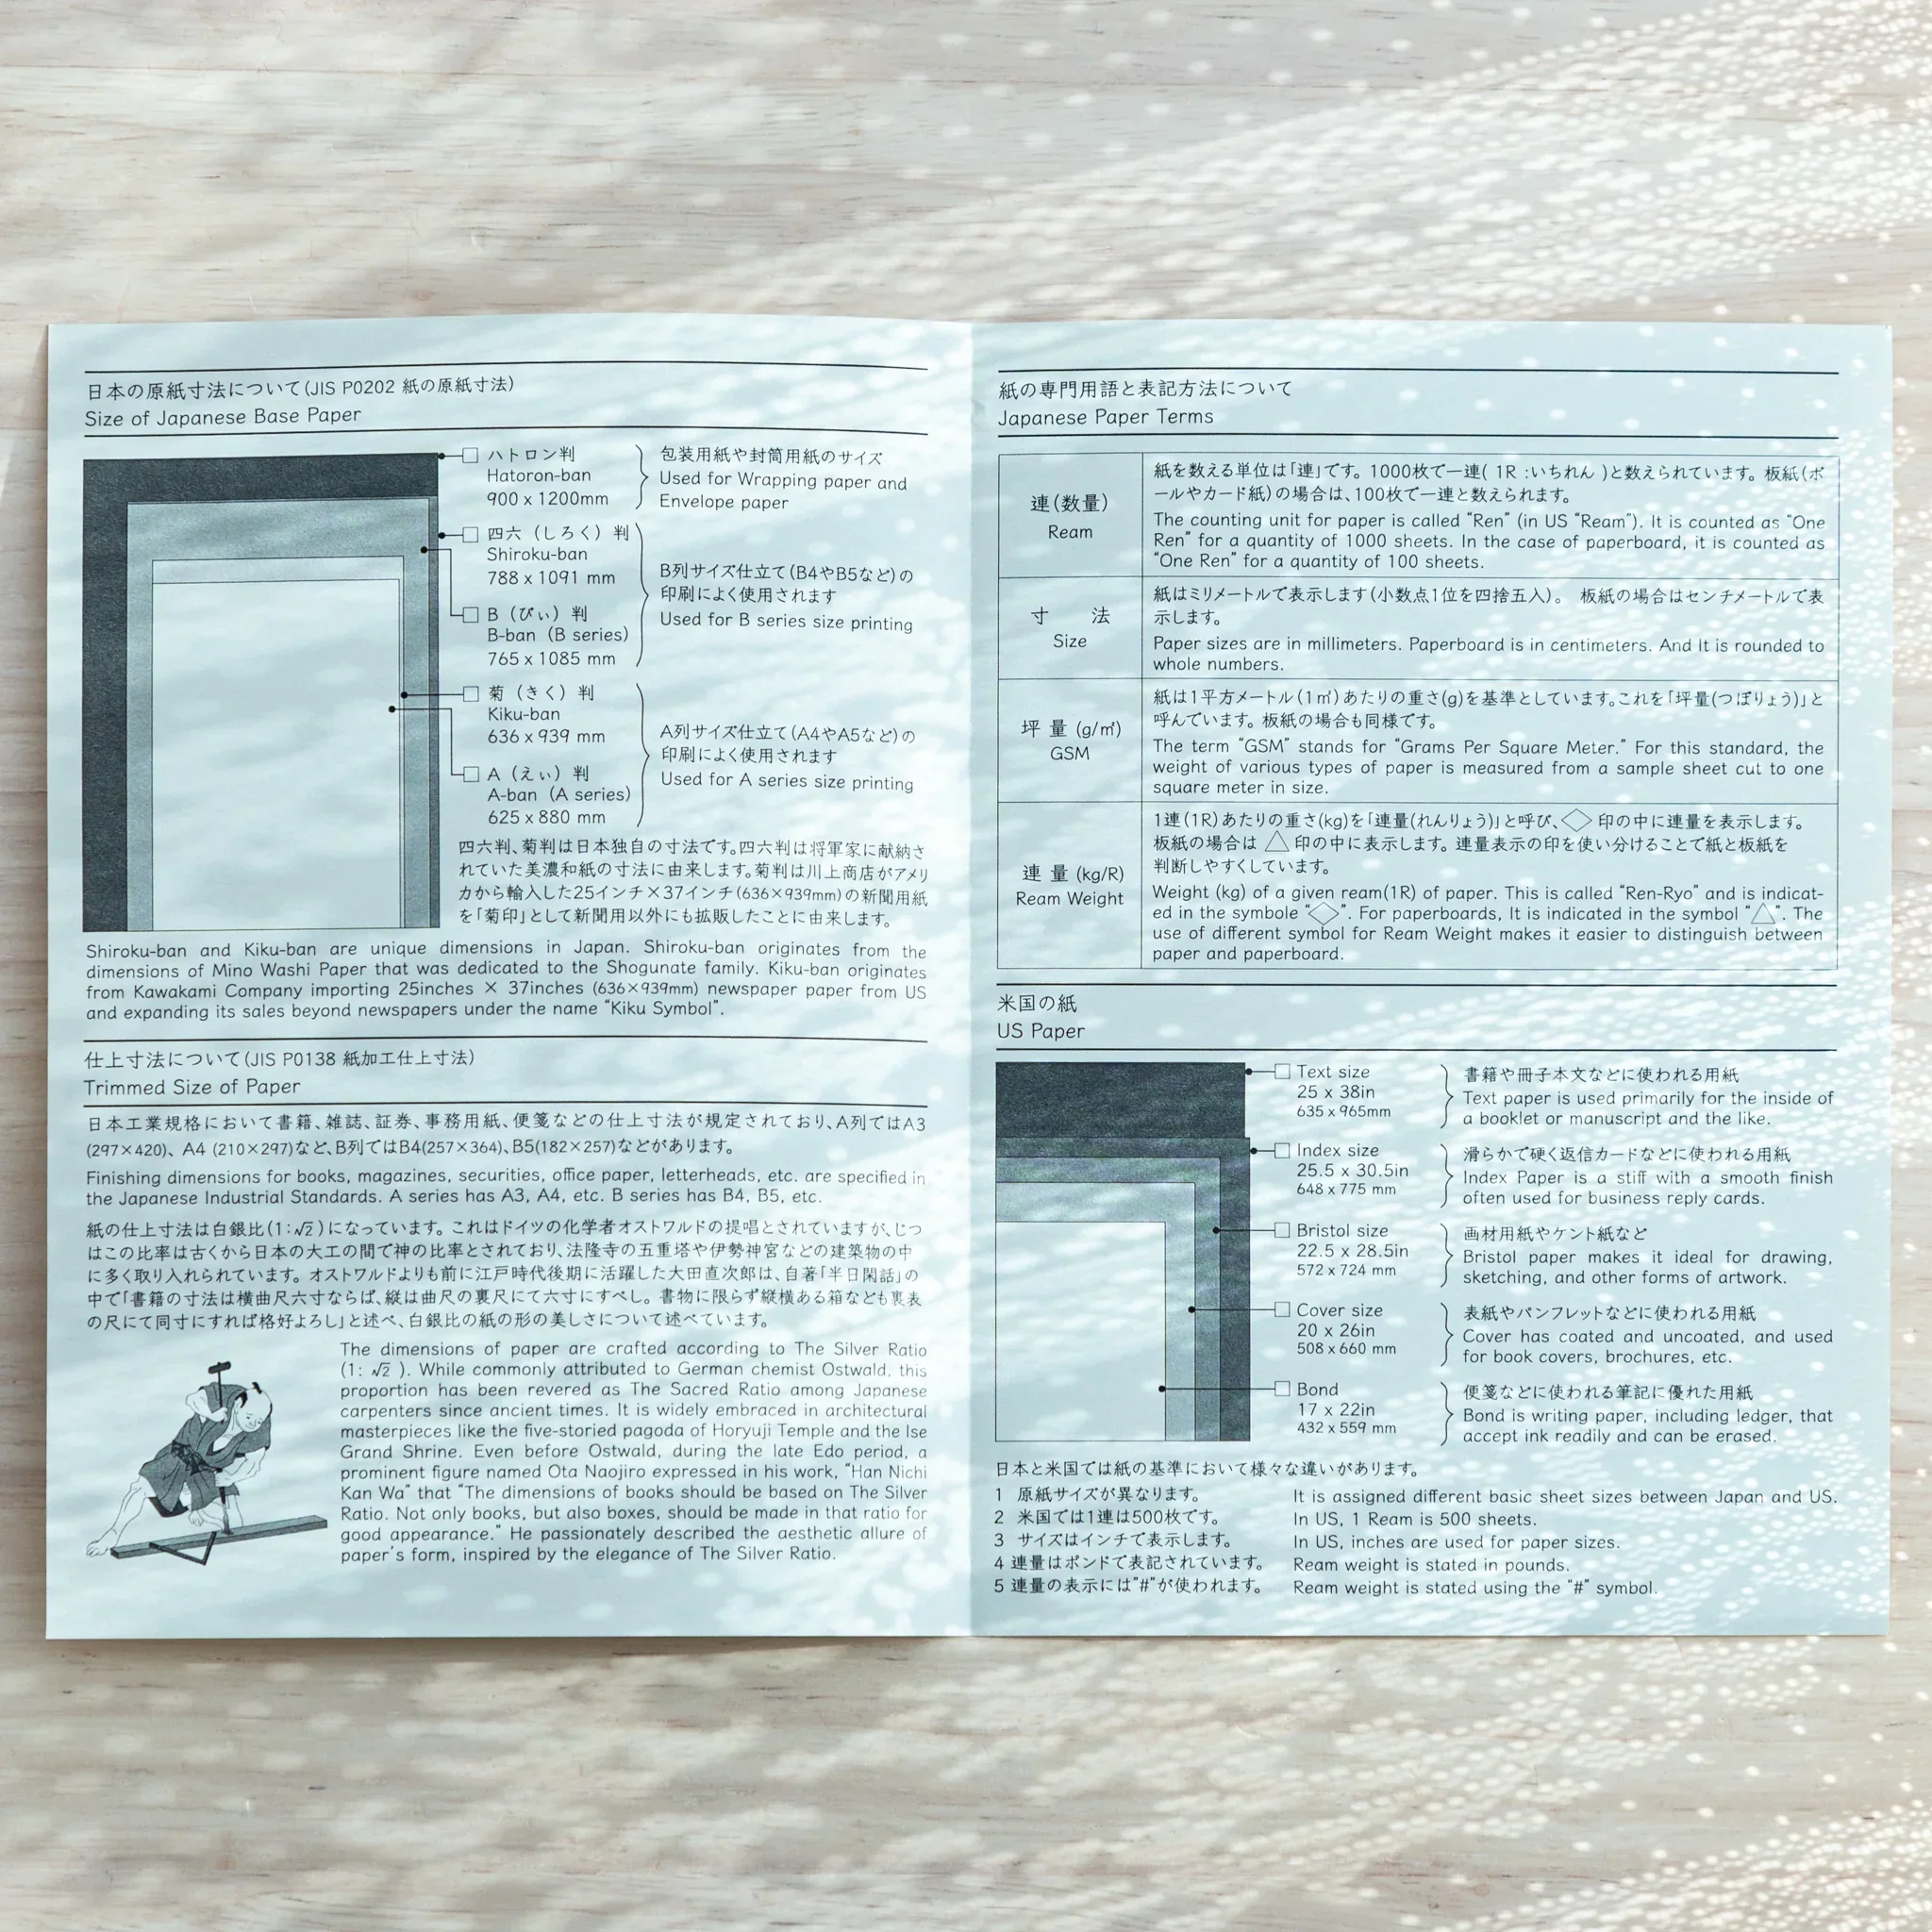 日本の原紙寸法について(JIS P0202 紙の原紙寸法)
Size of Japanese Base Paper
ハトロン判
Hatoron-ban
900 x 1200mm
包装用紙や封筒用紙のサイズ
Used for Wrapping paper and
Envelope paper
四六（しろく）判
Shiroku-ban
788 x 1091 mm
B（びぃ）判
B-ban（B series）
765 x 1085 mm
B列サイズ仕立て(B4やB5など)の
印刷によく使用されます
Used for B series size printing
菊（きく）判
Kiku-ban
636 x 939 mm
A（えぃ）判
A-ban（A series）
625 x 880 mm
A列サイズ仕立て(A4やA5など)の
印刷によく使用されます
Used for A series size printing
四六判、菊判は日本独自の寸法です。四六判は将軍家に献納さ
れていた美濃和紙の寸法に由来します。菊判は川上商店がアメリ
カから輸入した25インチ×37インチ(636×939mm)の新聞用紙
を「菊印」として新聞用以外にも拡販したことに由来します。
Shiroku-ban and Kiku-ban are unique dimensions in Japan. Shiroku-ban originates from the
dimensions of Mino Washi Paper that was dedicated to the Shogunate family. Kiku-ban originates
from Kawakami Company importing 25inches × 37inches (636×939mm) newspaper paper from US
and expanding its sales beyond newspapers under the name “Kiku Symbol”.
仕上寸法について(JIS P0138 紙加工仕上寸法)
Trimmed Size of Paper
日本工業規格において書籍、雑誌、証券、事務用紙、便箋などの仕上寸法が規定されており、A列ではA3
(297×420)、A4 (210×297)など、B列ではB4(257×364)、B5(182×257)などがあります。
Finishing dimensions for books, magazines, securities, office paper, letterheads, etc. are specified in
the Japanese Industrial Standards. A series has A3, A4, etc. B series has B4, B5, etc.
紙の仕上寸法は白銀比(1:√2)になっています。これはドイツの化学者オストワルドの提唱とされていますが、じつ
はこの比率は古くから日本の大工の間で神の比率とされており、法隆寺の五重塔や伊勢神宮などの建築物の中
に多く取り入れられています。オストワルドよりも前に江戸時代後期に活躍した大田直次郎は、自著「半日閑話」の
中で「書籍の寸法は横曲尺六寸ならば、縦は曲尺の裏尺にて六寸にすべし。書物に限らず縦横ある箱なども裏表
の尺にて同寸にすれば格好よろし」と述べ、白銀比の紙の形の美しさについて述べています。
The dimensions of paper are crafted according to The Silver Ratio
(1: √2 ). While commonly attributed to German chemist Ostwald, this
proportion has been revered as The Sacred Ratio among Japanese
carpenters since ancient times. It is widely embraced in architectural
masterpieces like the five-storied pagoda of Horyuji Temple and the Ise
Grand Shrine. Even before Ostwald, during the late Edo period, a
prominent figure named Ota Naojiro expressed in his work, “Han Nichi
Kan Wa” that “The dimensions of books should be based on The Silver
Ratio. Not only books, but also boxes, should be made in that ratio for
good appearance.” He passionately described the aesthetic allure of
paper's form, inspired by the elegance of The Silver Ratio.
紙の専門用語と表記方法について
Japanese Paper Terms
連(数量)
Ream
紙を数える単位は「連」です。1000枚で一連( 1R :いちれん )と数えられています。板紙(ボ
ールやカード紙)の場合は、100枚で一連と数えられます。
The counting unit for paper is called “Ren” (in US “Ream”). It is counted as “One
Ren” for a quantity of 1000 sheets. In the case of paperboard, it is counted as
“One Ren” for a quantity of 100 sheets.
寸　法
Size
紙はミリメートルで表示します(小数点1位を四捨五入)。 板紙の場合はセンチメートルで表
示します。
Paper sizes are in millimeters. Paperboard is in centimeters. And It is rounded to
whole numbers.
坪 量 (g/㎡)
GSM
紙は1平方メートル(1㎡)あたりの重さ(g)を基準としています。これを「坪量(つぼりょう)」と
呼んでいます。板紙の場合も同様です。
The term “GSM” stands for “Grams Per Square Meter.” For this standard, the
weight of various types of paper is measured from a sample sheet cut to one
square meter in size.
連 量 (kg/R)
Ream Weight
1連(1R)あたりの重さ(kg)を「連量(れんりょう)」と呼び、◇ 印の中に連量を表示します。
板紙の場合は △ 印の中に表示します。連量表示の印を使い分けることで紙と板紙を
判断しやすくしています。
Weight (kg) of a given ream(1R) of paper. This is called “Ren-Ryo” and is indicat-
ed in the symbole “◇”. For paperboards, It is indicated in the symbol “△”. The
use of different symbol for Ream Weight makes it easier to distinguish between
paper and paperboard.
米国の紙
US Paper
Text size
25 x 38in
635 x 965mm
書籍や冊子本文などに使われる用紙
Text paper is used primarily for the inside of
a booklet or manuscript and the like.
Index size
25.5 x 30.5in
648 x 775 mm
滑らかで硬く返信カードなどに使われる用紙
Index Paper is a stiff with a smooth finish
often used for business reply cards.
Bristol size
22.5 x 28.5in
572 x 724 mm
画材用紙やケント紙など
Bristol paper makes it ideal for drawing,
sketching, and other forms of artwork.
Cover size
20 x 26in
508 x 660 mm
表紙やパンフレットなどに使われる用紙
Cover has coated and uncoated, and used
for book covers, brochures, etc.
Bond
17 x 22in
432 x 559 mm
便箋などに使われる筆記に優れた用紙
Bond is writing paper, including ledger, that
accept ink readily and can be erased.
日本と米国では紙の基準において様々な違いがあります。
1 原紙サイズが異なります。 It is assigned different basic sheet sizes between Japan and US.
2 米国では1連は500枚です。 In US, 1 Ream is 500 sheets.
3 サイズはインチで表示します。 In US, inches are used for paper sizes.
4 連量はポンドで表記されています。 Ream weight is stated in pounds.
5 連量の表示には"#"が使われます。 Ream weight is stated using the “#” symbol.